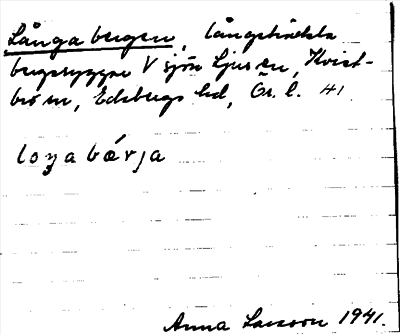 Långa bergen, långsträckta
bergsryggar V sjön Ljusen, Kvist-
bro sn, Edsbergs hd, Ör. l. 41
loŋa bærja
Anna Larsson 1941.